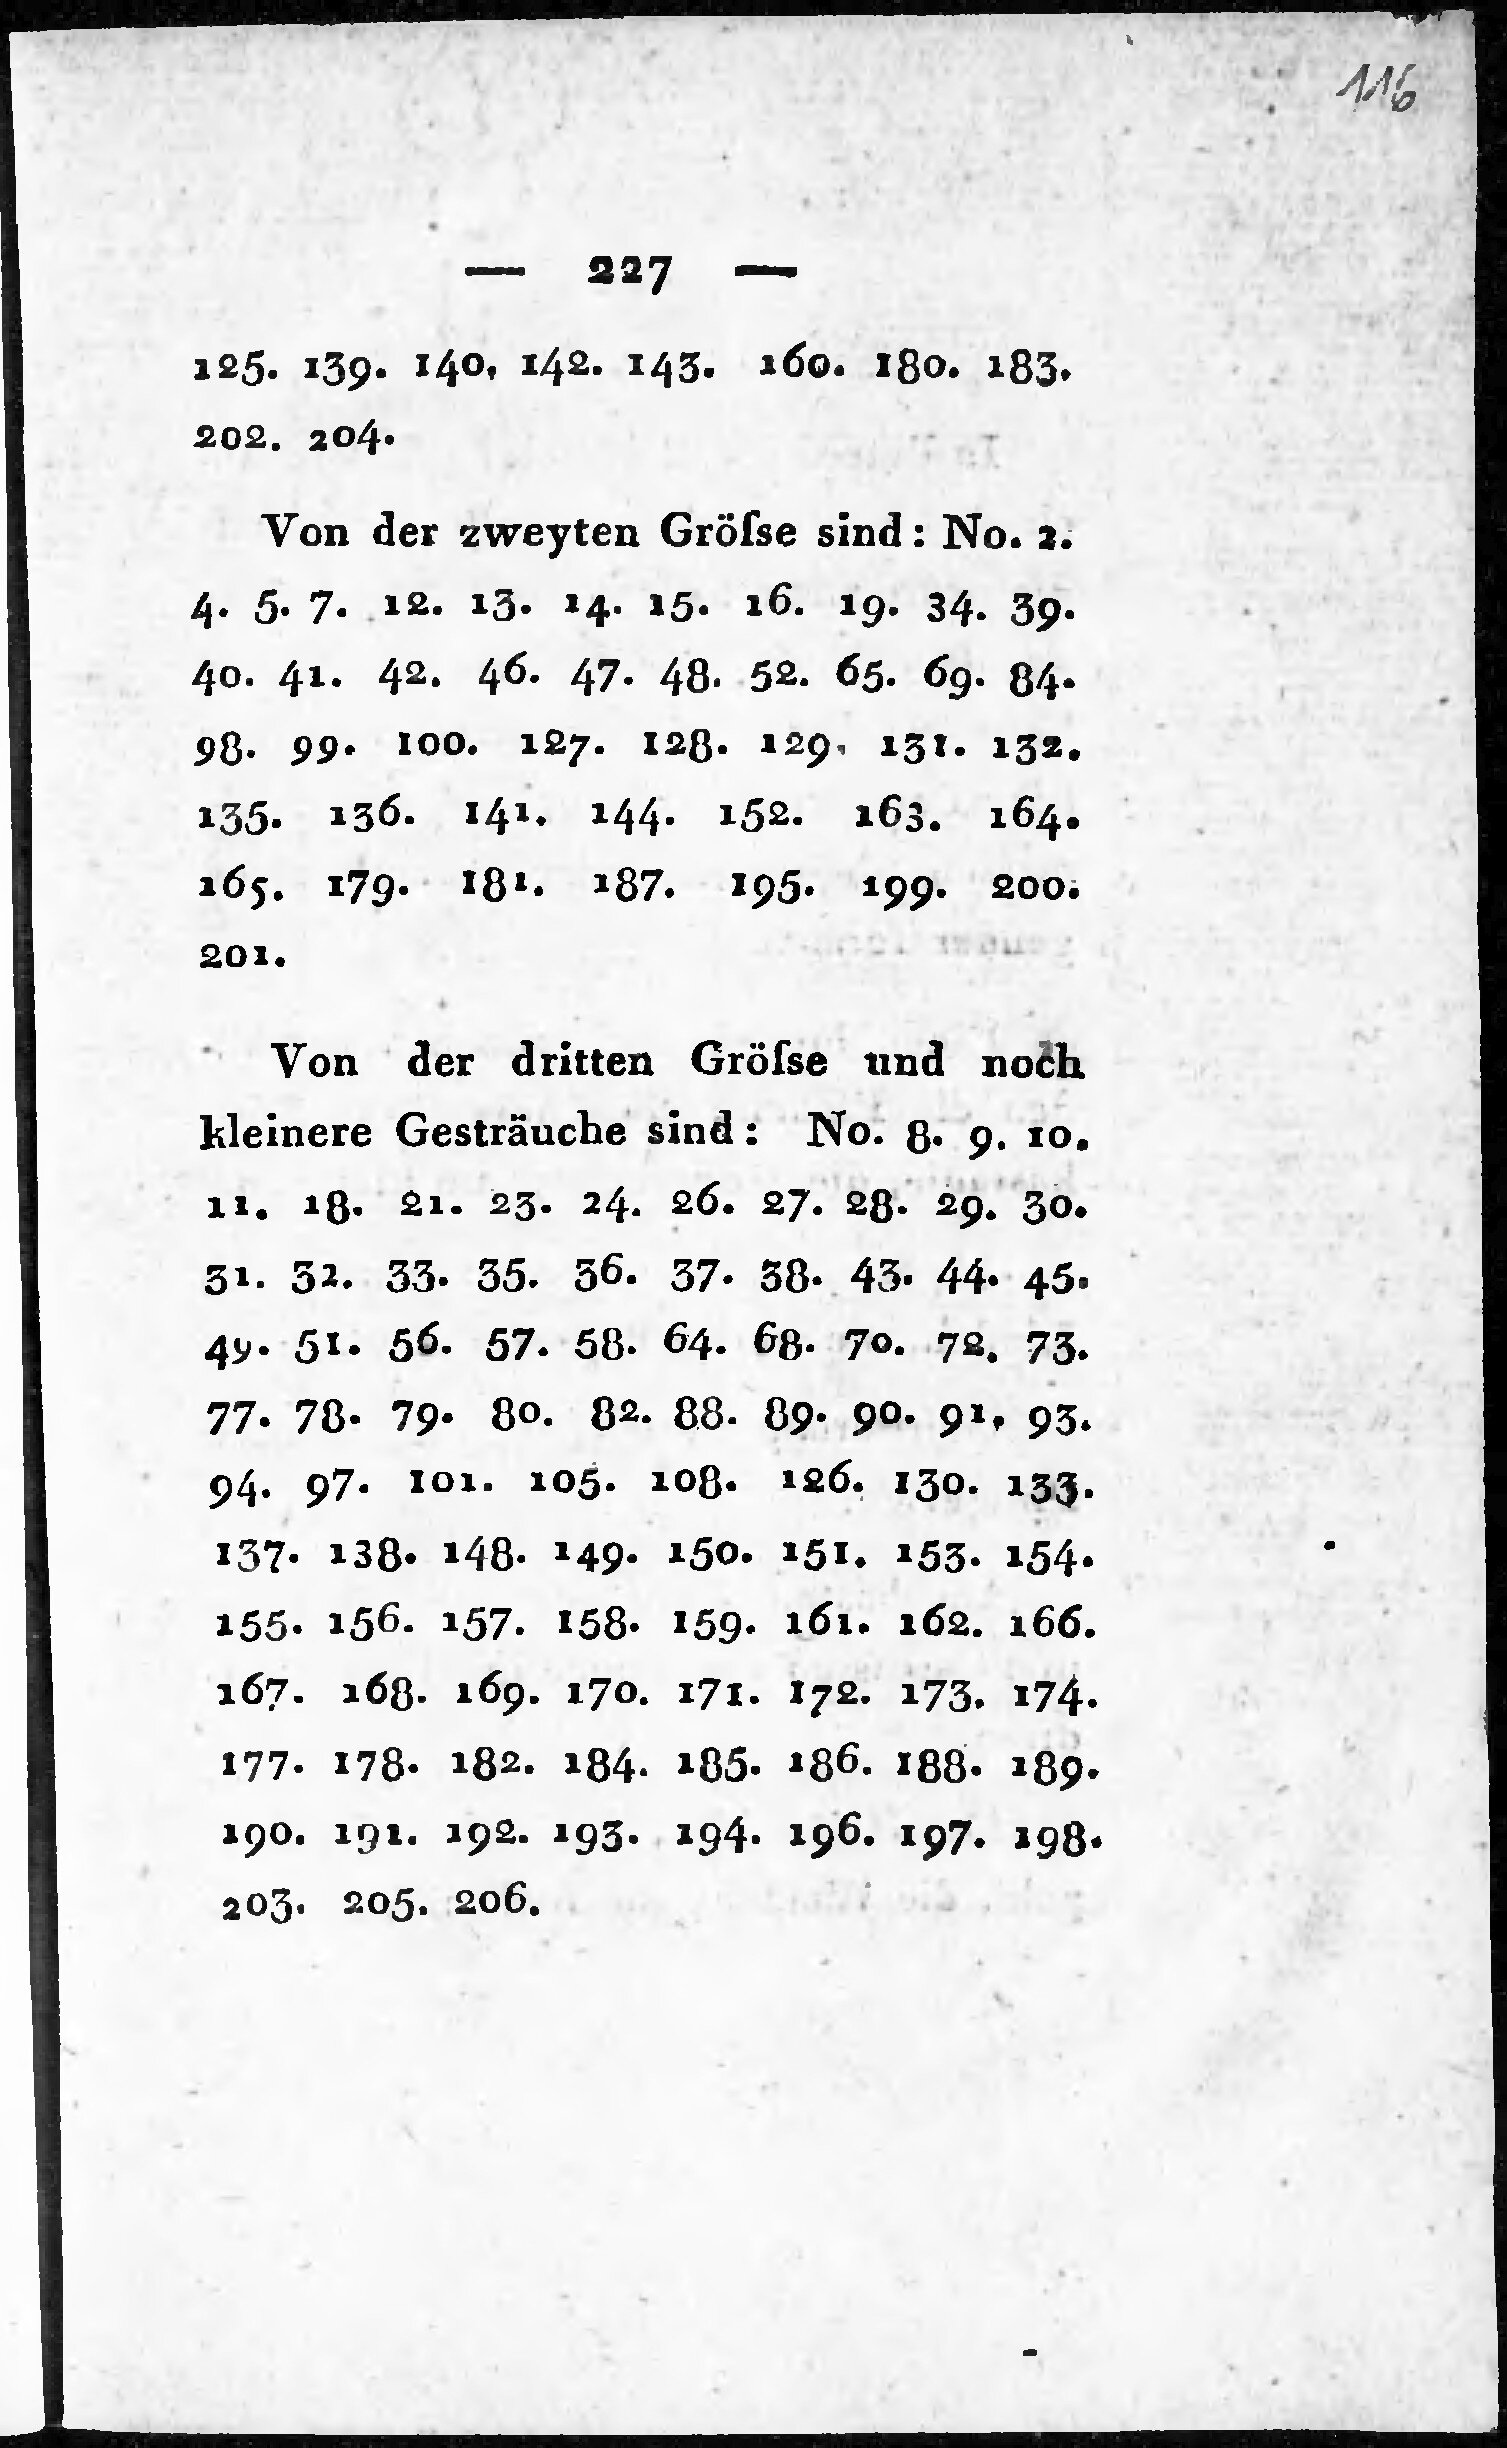 116
— 227 —
125. 139. 140, 142. 143. 160. 180. 183.
202. 204.
Von der zweyten Gröſse sind: No. 2.
4. 5. 7. 12. 13. 14. 15. 16. 19. 34. 39.
40. 41. 42. 46. 47. 48. 52. 65. 69. 84.
98. 99. 100. 127. 128. 129. 131. 132.
135. 136. 141. 144. 152. 163. 164.
165. 179. 181. 187. 195. 199. 200.
201.
Von der dritten Gröſse und noch
kleinere Gesträuche sind: No. 8. 9. 10.
11. 18. 21. 23. 24. 26. 27. 28. 29. 30.
31. 32. 33. 35. 36. 37. 38. 43. 44. 45.
49. 51. 56. 57. 58. 64. 68. 70. 72. 73.
77. 78. 79. 80. 82. 88. 89. 90. 91. 93.
94. 97. 101. 105. 108. 126. 130. 133.
137. 138. 148. 149. 150. 151. 153. 154.
155. 156. 157. 158. 159. 161. 162. 166.
167. 168. 169. 170. 171. 172. 173. 174.
177. 178. 182. 184. 185. 186. 188. 189.
190. 191. 192. 193. 194. 196. 197. 198.
203. 205. 206.